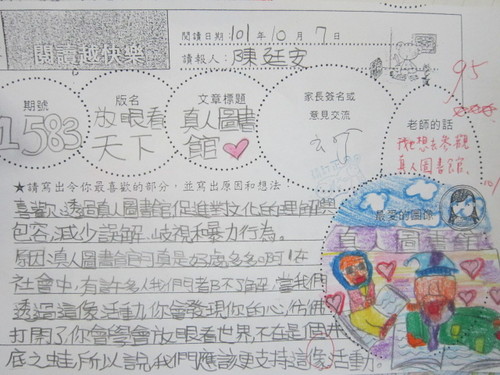 閱讀越快樂
閱讀日期 101 年 10 月 7 日
讀報人: 陳廷安
95
期號
1583
版名
放眼看
天下
文章標題
真人圖書
館
家長簽名或
意見交流
老師的話
我也想去參觀
真人圖書館
★請寫出令你最喜歡的部分,並寫出原因和想法
喜歡:透過真人圖書館促進對文化的理解與
包容,減少誤解、歧視和暴力行為。
原因:真人圖書館可真是好處多多啊!在
社會中,有許多人我們都不了解,當我們
透過這像活動,你會發現你的心,彷彿
打開了,你會學會放眼看世界,不在是個井
底之蛙,所以說,我們應該更支持這像活動。
最愛的圖像
真人圖書館